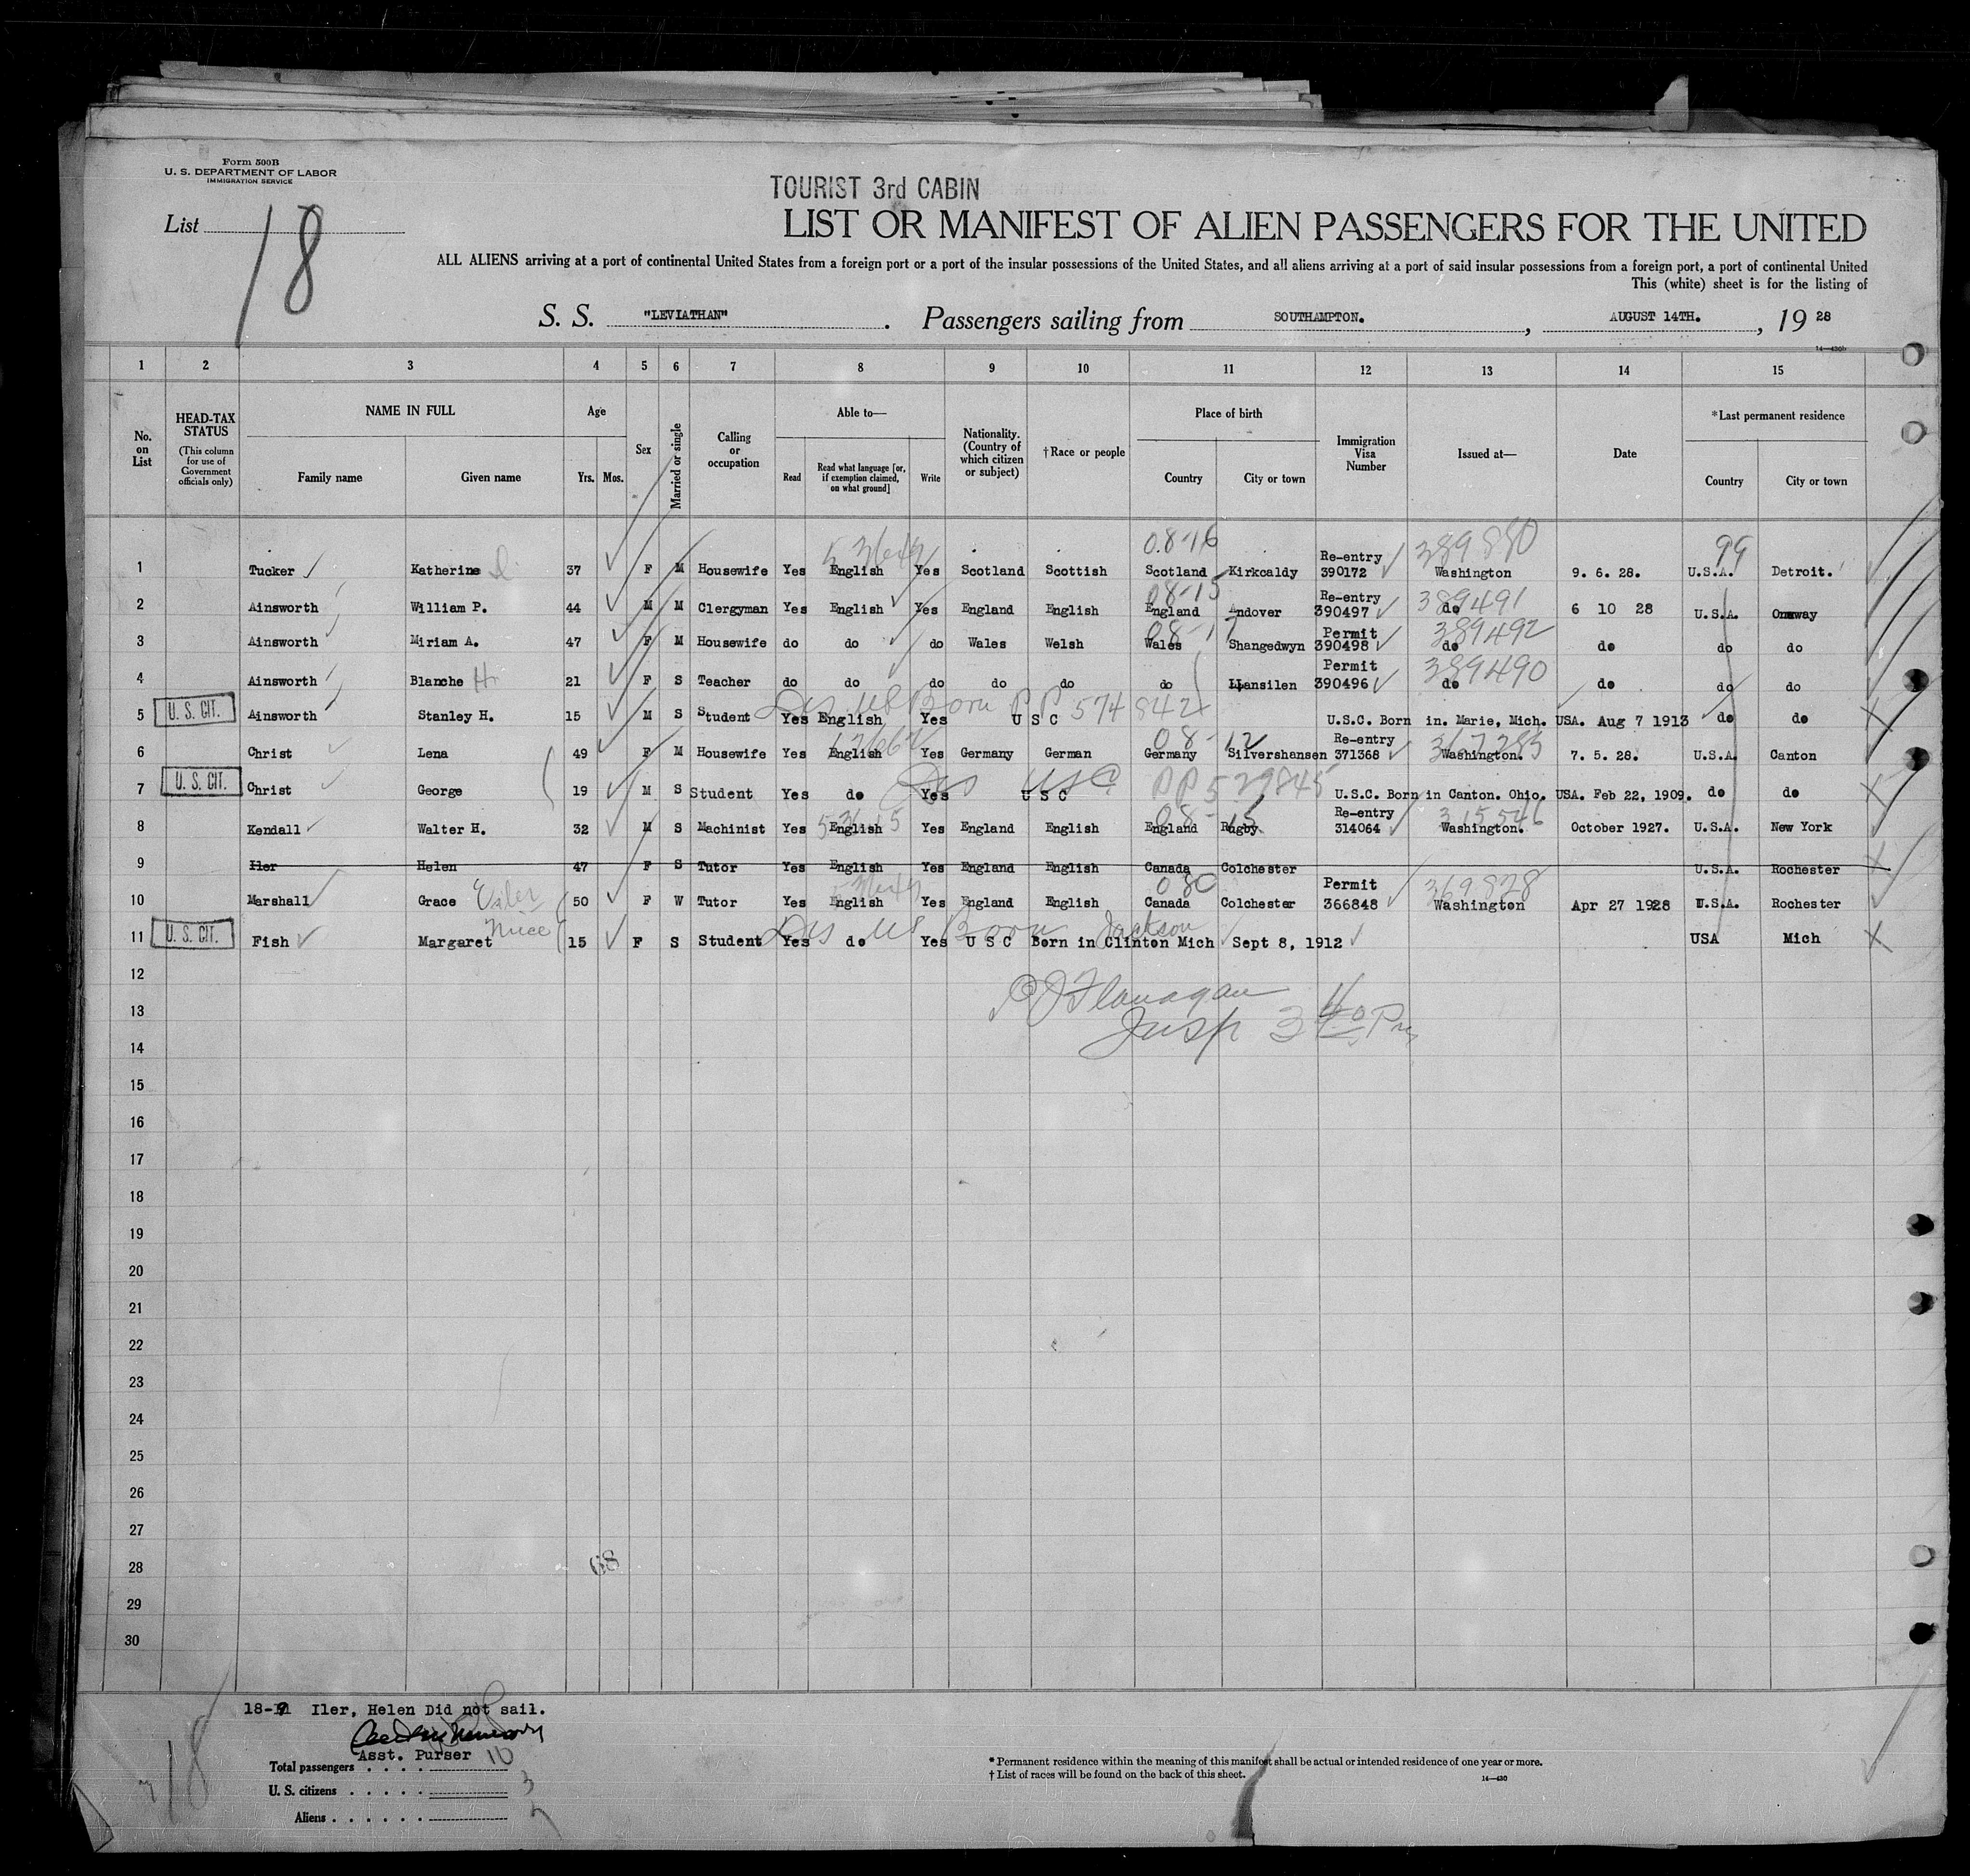 Form 500B
U. S. DEPARTMENT OF LABOR
IMMIGRATION SERVICE
TOURIST 3rd CABIN
List 18
LIST OR MANIFEST OF ALIEN PASSENGERS FOR THE UNITED
ALL ALIENS arriving at a port of continental United States from a foreign port or a port of the insular possessions of the United States, and all aliens arriving at a port of said insular possessions from a foreign port, a port of continental United
This (white) sheet is for the listing of
S. S. "LEVIATHAN". Passengers sailing from SOUTHAMPTON., AUGUST 14TH., 19 28
14—430b
1 2 3 4 5 6 7 8 9 10 11 12 13 14 15
No. on List
HEAD-TAX STATUS
(This column for use of Government officials only)
NAME IN FULL
Family name Given name
Age
Yrs. Mos.
Sex
Married or single
Calling or occupation
Able to—
Read Read what language [or, if exemption claimed, on what ground] Write
Nationality. (Country of which citizen or subject)
†Race or people
Place of birth
Country City or town
Immigration Visa Number
Issued at—
Date
*Last permanent residence
Country City or town
08-16 389880 99
1 Tucker Katherine 37 F M Housewife Yes English Yes Scotland Scottish Scotland Kirkcaldy Re-entry 390172 Washington 9. 6. 28. U.S.A. Detroit.
08-15 389491
2 Ainsworth William P. 44 M M Clergyman Yes English Yes England English England Andover Re-entry 390497 do 6 10 28 U.S.A. Onaway
08-17 389492
3 Ainsworth Miriam A. 47 F M Housewife do do do Wales Welsh Wales Shangedwyn Permit 390498 do do do do
389490
4 Ainsworth Blanche H. 21 F S Teacher do do do do do do Llansilen Permit 390496 do do do do
Des US Born PP 574842
5 U. S. CIT. Ainsworth Stanley H. 15 M S Student Yes English Yes U S C U.S.C. Born in. Marie, Mich. USA. Aug 7 1913 do do
08-12 367285
6 Christ Lena 49 F M Housewife Yes English Yes Germany German Germany Silvershansen Re-entry 371368 Washington. 7. 5. 28. U.S.A. Canton
USC PP 529845
7 U. S. CIT. Christ George 19 M S Student Yes do Yes U S C U.S.C. Born in Canton. Ohio. USA. Feb 22, 1909. do do
08-15 315546
8 Kendall Walter H. 32 M S Machinist Yes English Yes England English England Rugby Re-entry 314064 Washington. October 1927. U.S.A. New York
9 Iler Helen 47 F S Tutor Yes English Yes England English Canada Colchester U.S.A. Rochester
080 369828
10 Marshall Grace 50 F W Tutor Yes English Yes England English Canada Colchester Permit 366848 Washington Apr 27 1928 U.S.A. Rochester
Des US Born Jackson
11 U. S. CIT. Fish Margaret 15 F S Student Yes do Yes U S C Born in Clinton Mich Sept 8, 1912 USA Mich
12
13
Flanagan
Insp 3 40 Pm
14
15
16
17
18
19
20
21
22
23
24
25
26
27
28
68
29
30
18-9 Iler, Helen Did not sail.
Asst. Purser
Total passengers . . . . 10
U. S. citizens . . . . . 3
Aliens . . . . . . 7
18
* Permanent residence within the meaning of this manifest shall be actual or intended residence of one year or more.
† List of races will be found on the back of this sheet.
14—430